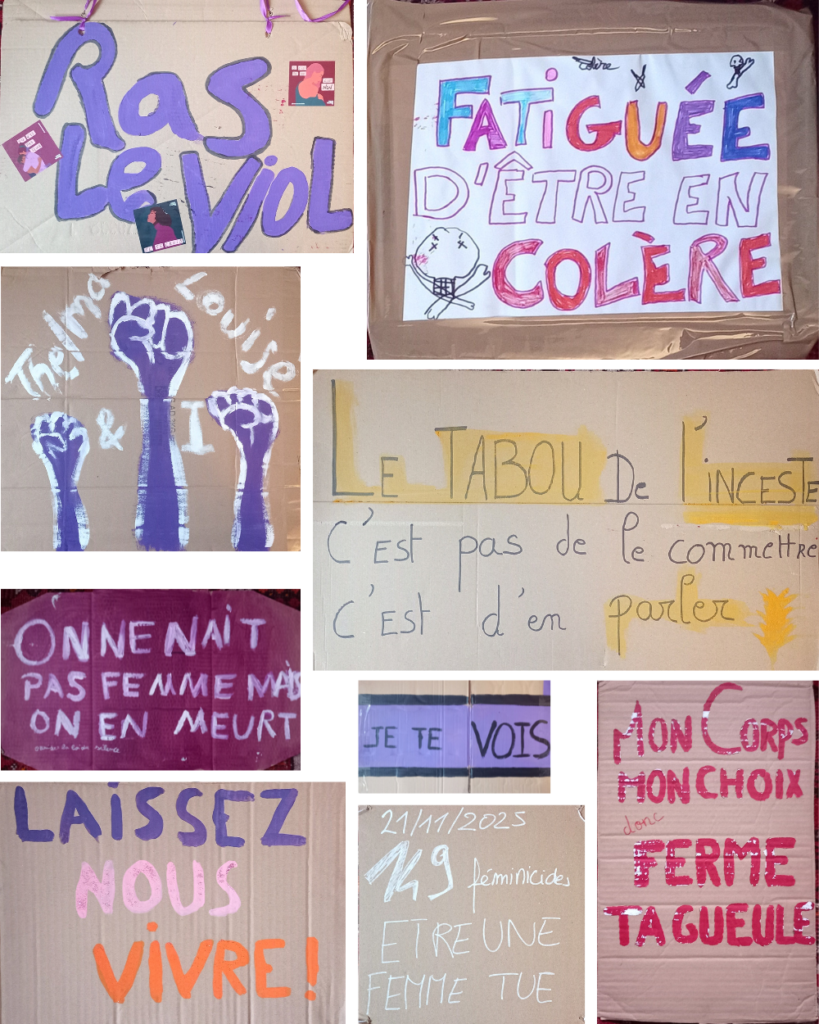 Ras
Le Viol
colère
FATIGUÉE
D'ÊTRE EN
COLÈRE
Thelma Louise
& I
LE TABOU De l'INCESTE
C'EST pas de le commettre
C'EST d'en parler
ON NE NAiT
PAS FEMME MAiS
ON EN MEURT
JE TE VOIS
MON CORPS
MON CHOIX
donc
FERME
TA GUEULE
LAiSSEZ
NOUS
ViVRE!
21/11/2025
149 féminicides
ETRE UNE
FEMME TUE